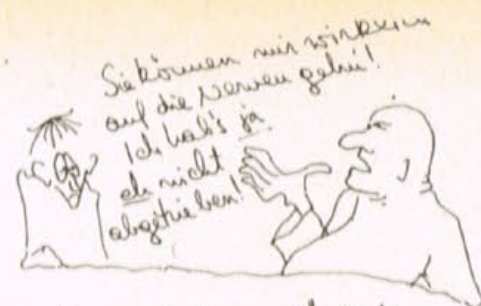 Sie können mir wirklich
auf die Nerven gehn!
Ich hab's ja
eh nicht
abgetrieben!